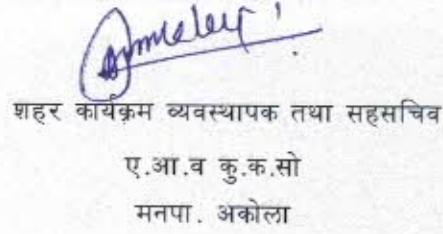 शहर कार्यक्रम व्यवस्थापक तथा सहसचिव
ए.आ.व कु.क.सो
मनपा. अकोला